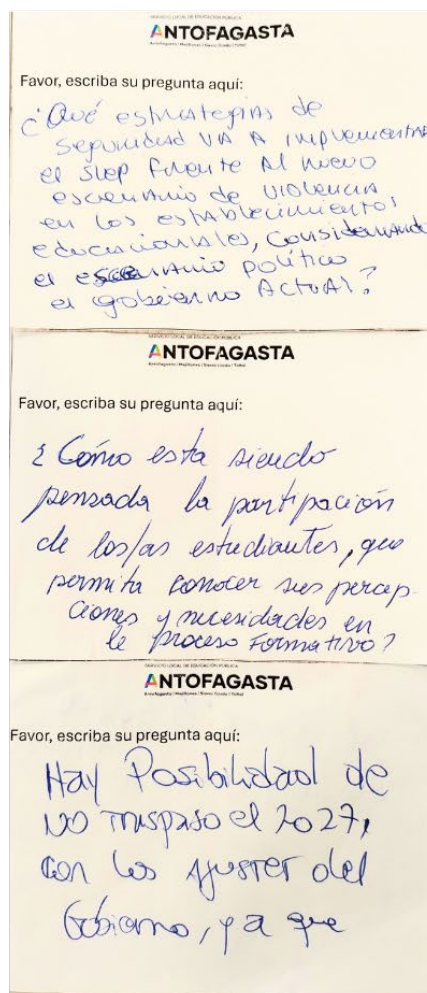 SERVICIO LOCAL DE EDUCACIÓN PÚBLICA
ANTOFAGASTA
Antofagasta | Mejillones | Sierra Gorda | Taltal
Favor, escriba su pregunta aquí:
¿Qué estrategias de
seguridad va a implementar
el Slep frente al nuevo
escenario de violencia
en los establecimientos
educacionales, considerando
el escenario político
el gobierno actual?
SERVICIO LOCAL DE EDUCACIÓN PÚBLICA
ANTOFAGASTA
Antofagasta | Mejillones | Sierra Gorda | Taltal
Favor, escriba su pregunta aquí:
¿Cómo esta siendo
pensada la partipación
de los/as estudiantes, que
permita conocer sus percep-
ciones y necesidades en
le proceso formativo?
SERVICIO LOCAL DE EDUCACIÓN PÚBLICA
ANTOFAGASTA
Antofagasta | Mejillones | Sierra Gorda | Taltal
Favor, escriba su pregunta aquí:
Hay Posibilidad de
NO traspaso el 2027,
con los ajustes del
Gobierno, ya que